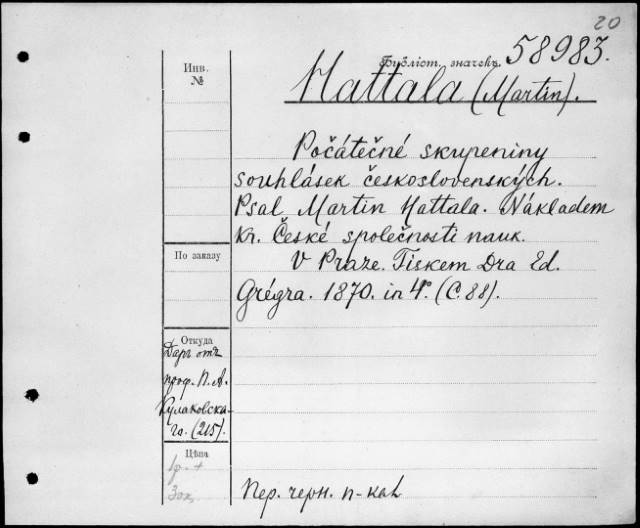 20
Библіот. значекъ 58983.
Инв.
№
Hattala (Martin).
Počátečné skupeniny
souhlásek československých.
Psal Martin Hattala. Nákladem
kr. České společnosti nauk.
V Praze. Tiskem Dra Ed.
Grégra. 1870. in 4°. (C. 88).
По заказу
Откуда
Даръ отъ
проф. П. А.
Кулаковска-
го. (215).
Цѣна
1р. +
Пер. черн. п-кал